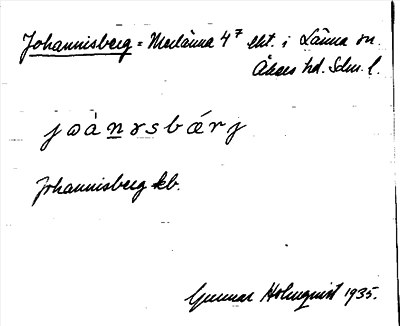 Johannisberg = Merlänna 4⁷ ekt. i Länna sn.
Åkers hd. Sdm. l.
jɷànɤsbǽrj
Johannisberg kb.
Gunnar Holmquist 1935.